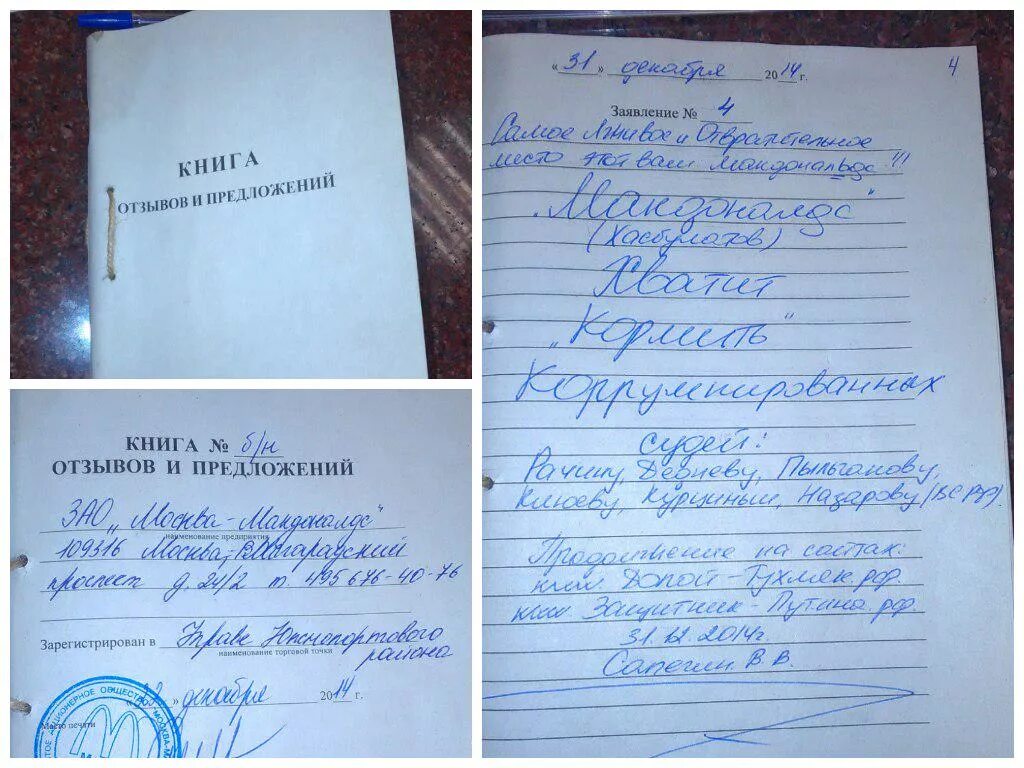 КНИГА
ОТЗЫВОВ И ПРЕДЛОЖЕНИЙ
КНИГА № б/н
ОТЗЫВОВ И ПРЕДЛОЖЕНИЙ
ЗАО „Москва-Макдоналдс"
наименование предприятия
109316 Москва, Волгоградский
проспект д. 24/2 т 495 676-40-76
Зарегистрирован в Управе Южнопортового
наименование торговой точки
района
декабря 2014 г.
Место печати
АКЦИОНЕРНОЕ ОБЩЕСТВО
4
« 31 » декабря 2014 г.
Заявление № 4
Самое Лживое и Отвратительное
место этот ваш Макдональдс!!!
„Макдоналдс"
(Хасбулатов)
Хватит
„Кормить"
Коррумпированных
судей:
Рачину, Девневу, Пыльганову,
Клюеву, Курциньш, Назарову (ВС РФ).
Продолжение на сайтах:
или Долой-Тухмяк.рф.
или Защитник-Путина.рф.
31.12.2014г
Сапегин В.В.